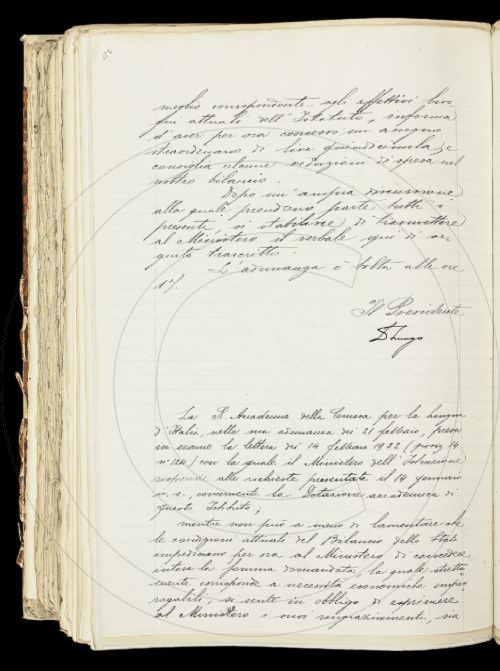 meglio corrispondente agli effettivi biso-
gni attuali dell'Istituto, informa
d'aver per ora concesso un assegno
straordinario di lire quindicimila, e
consiglia alcune riduzioni di spesa nel
nostro bilancio.
Dopo un'ampia discussione
alla quale prendono parte tutti i
presenti, si stabilisce di trasmettere
al Ministero il verbale qui di se-
guito trascritto.
L'adunanza è tolta alle ore
17.
Il Presidente
La R. Accademia della Crusca per la lingua
d'Italia, nella sua adunanza dei 21 febbraio, presa
in esame la lettera dei 14 febbraio 1922 (posiz. 14
n° 1214) con la quale il Ministero dell'Istruzione
risponde alle richieste presentate il 19 gennaio
u. s., concernente la Dotazione accademica di
questo Istituto;
mentre non può a meno di lamentare che
le condizioni attuali del Bilancio dello Stato
impediscano per ora al Ministero di concedere
intera la somma domandata, la quale stretta-
mente corrisponde a necessità economiche impro-
rogabili, si sente in obbligo di esprimere
al Ministero i suoi ringraziamenti, sia